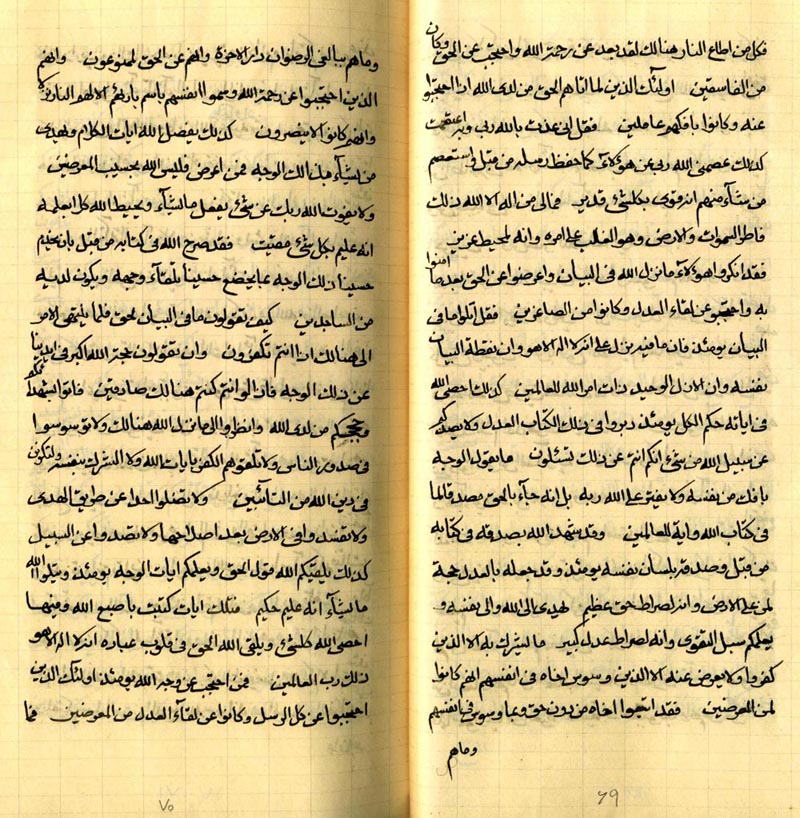 فكل من اطاع النار هنالك لقد بعد عن رحمة الله واحتجب عن الحق وكان
من الفاسقين اولئك الذين لما اتاهم الحق من لدى الله اذا احتجبوا
عنه وكانوا بافكهم عاملين فقل انى عذت بالله ربى وبه اعتصمت
كذلك عصمنى الله ربى عن هؤلاء كما حفظ رسله من قبل واستعصم
من يشآء منهم انه قوى بكلشئ قدير فمالى من اله الا الله ذلك
فاطر السموات والارض وهو الغالب على امره وانه لمحيط عزيز
فقد انكروا هؤلاء ما نزل الله فى البيان واعرضوا عن الحق بعد ما امنوا
به واحتجبوا عن لقاء العدل وكانوا من الصاغرين فقل اتلوا ما فى
البيان يومئذ فان ما فيه ينزل على انه لا اله الا هو وان نقطة البيان
بنفسه وان الازل الوحيد ذات امر الله للعالمين كذلك احصى الله
فى اياته حكم الكل يومئذ دبروا فى ذلك الكتاب العدل ولا يصدكم
عن سبيل الله من شئ انكم انتم عن ذلك تسئلون ما يقول الوجه
بافك من نفسه ولا يفترى على الله ربه بل انه جآء بالحق مصدقا لما
فى كتاب الله واية للعالمين وقد شهد الله بصدقه فى كتابه
من قبل وصدقه بلسان نفسه يومئذ وقد جعله بالعدل حجة
لمن على الارض وانه لصراط حق عظيم يهدى الى الله والى نفسه و
يعلمكم سبل التقوى وانه لصراط عدل كبير ما يشرك به الا الذين
كفروا ولا يعرض عنه الا الذين وسوس اخاه فى انفسهم انهم كانوا
لمن المعرضين فقد اتبعوا اخاه من دون حق وبما وسوس فى انفسهم
وما هم
۶۹
وما هم ببالغى الرضوان دار الاخرة وانهم عن الحق لممنوعون وانهم
الذين احتجبوا عن رحمة الله وسموا انفسهم باسم بارئهم الا لهم النار نزلا
وانهم كانوا لا ينصرون كذلك يفصل الله ايات الكلام ويهدى
من يشآء هنالك الوجه فمن اعرض فليس الله بحسيب المعرضين
ولا يفوت الله ربك عن شئ يفعل ما يشآء ويحيط الله كل ابعلمه
انه عليم بكل شئ مقيت فقد صرح الله فى كتابه من قبل بان يختم
حسينا ذلك الوجه عبا يخضع حسينا تلقآء وجهه ويكون لديه
من الساجدين كيف تقولون ما فى البيان لحق فلما ينتهى الامر
الى هنالك اذا انتم تكفرون وان تقولون بحجة الله اكبر فى ايدينا
عن ذلك الوجه فاذا لو انتم كنتم هنالك صادقين فاتوا شهدائكم
بحججكم من لدى الله وانظروا الى ما نزل الله هنالك ولا توسوسوا
فى صدور الناس ولا تلقوهم الكفر بايات الله ولا الشرك بنفسه ولتكونن
فى دين الله من التائبين ولا تضلوا احدا عن طريق الهدى
ولا تفسدوا فى الارض بعد اصلاحها ولا تصدوا عن السبيل
كذلك يلقيكم الله قول الحق ويعلمكم ايات الوجه يومئذ ويتلوا الله
ما يشآء انه عليم حكيم فتلك ايات كتبت باصبع الله وفيها
احصى الله كلشئ ويلقى الله الحق فى قلوب عباده انه لا اله الا هو
ذلك رب العالمين فمن احتجب عن وجه الله يومئذ اولئك الذين
احتجبوا عن كل الرسل وكانوا عن لقآء العدل من المعرضين فما
۷۰